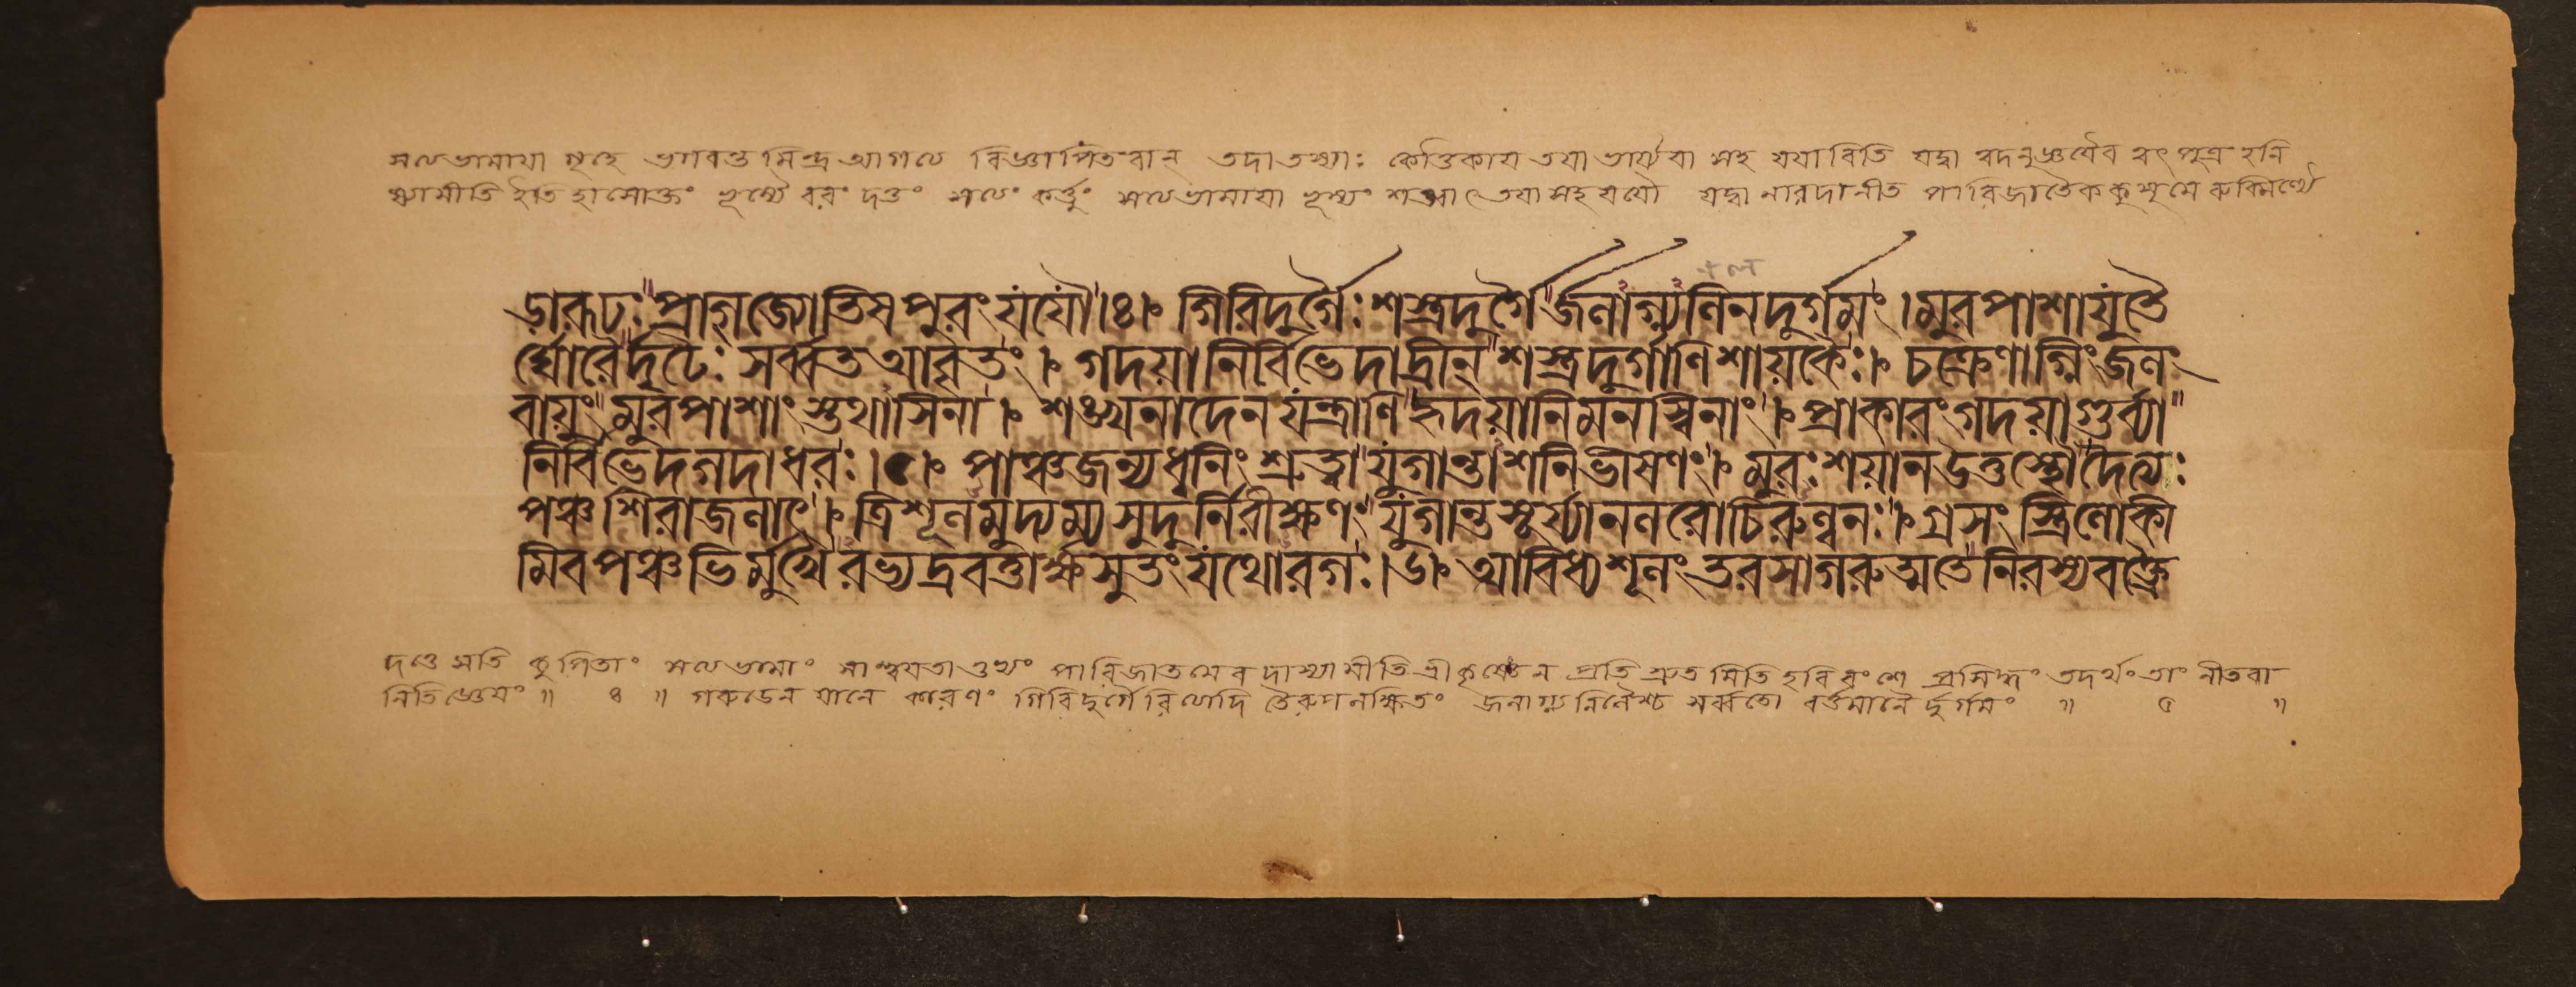 সত্যভামায়া গৃহে ভগবন্তমিন্দ্র আগত্য বিজ্ঞাপিতবান তদাতস্যাঃ কৌতুকায় তয়া ভার্য্যয়া সহ যযাবিতি যদ্বা ত্বদনুজ্ঞয়ৈব ত্বৎ পুত্রং হনি
ষ্যামীতি ইতি হাসোক্তং ভূম্যৈ বরং দত্তং সত্যং কর্ত্তুং সত্যভামায়া ভূম্যংশত্বাৎ তয়া সহ যযৌ যদ্বা নারদানীত পারিজাতৈককুসুমে রুক্মিণ্যৈ
ড়ারূঢঃ প্রাগ্জ্যোতিষপুরং যযৌ।৪। গিরিদুর্গৈঃ শস্ত্রদুর্গৈর্জলাগ্ন্যনিলদুর্গমং। মুরপাশাযুতৈ
র্ঘোরৈর্দৃঢৈঃ সর্ব্বত আবৃতং। গদয়া নির্বিভেদাদ্রীন্ শস্ত্রদুর্গাণি শায়কৈঃ। চক্রেণাগ্নিং জলং
বায়ুং মুরপাশাংস্তথাসিনা। শঙ্খনাদেন যন্ত্রাণি হৃদয়ানি মনস্বিনাং। প্রাকারং গদয়া গুর্ব্যা
নির্বিভেদ গদাধরঃ।৫। পাঞ্চজন্যধ্বনিং শ্রুত্বা যুগান্তাশনিভীষণং। মুরঃ শয়ান উত্তস্থৌ দৈত্যঃ
পঞ্চশিরা জলাৎ। ত্রিশূলমুদ্যম্য সুদুর্নিরীক্ষণঃ যুগান্তসূর্য্যানলরোচিরুল্বনঃ। গ্রসং স্ত্রিলোকী
মিব পঞ্চভির্মুখৈরভ্যদ্রবত্তার্ক্ষসুতং যথোরগঃ।৬। আবিধ্য শূলং তরসা গরুত্মতে নিরস্য বক্ত্রৈ
দত্তে সতি কুপিতাং সত্যভামাং সান্ত্বয়তা তুভ্যং পারিজাতমেব দাস্যামীতি শ্রীকৃষ্ণেন প্রতি শ্রুতমিতি হরিবংশে প্রসিদ্ধং তদর্থং তাং নীতবা
নিতি জ্ঞেয়ং ॥ ৪ ॥ গরুডেন যানে কারণং গিরিদুর্গৈরিত্যাদি তৈরুপলক্ষিতং জলাগ্ন্যনিলৈশ্চ সর্ব্বতো বর্ত্তমানৈ র্দুর্গমং ॥ ৫ ॥